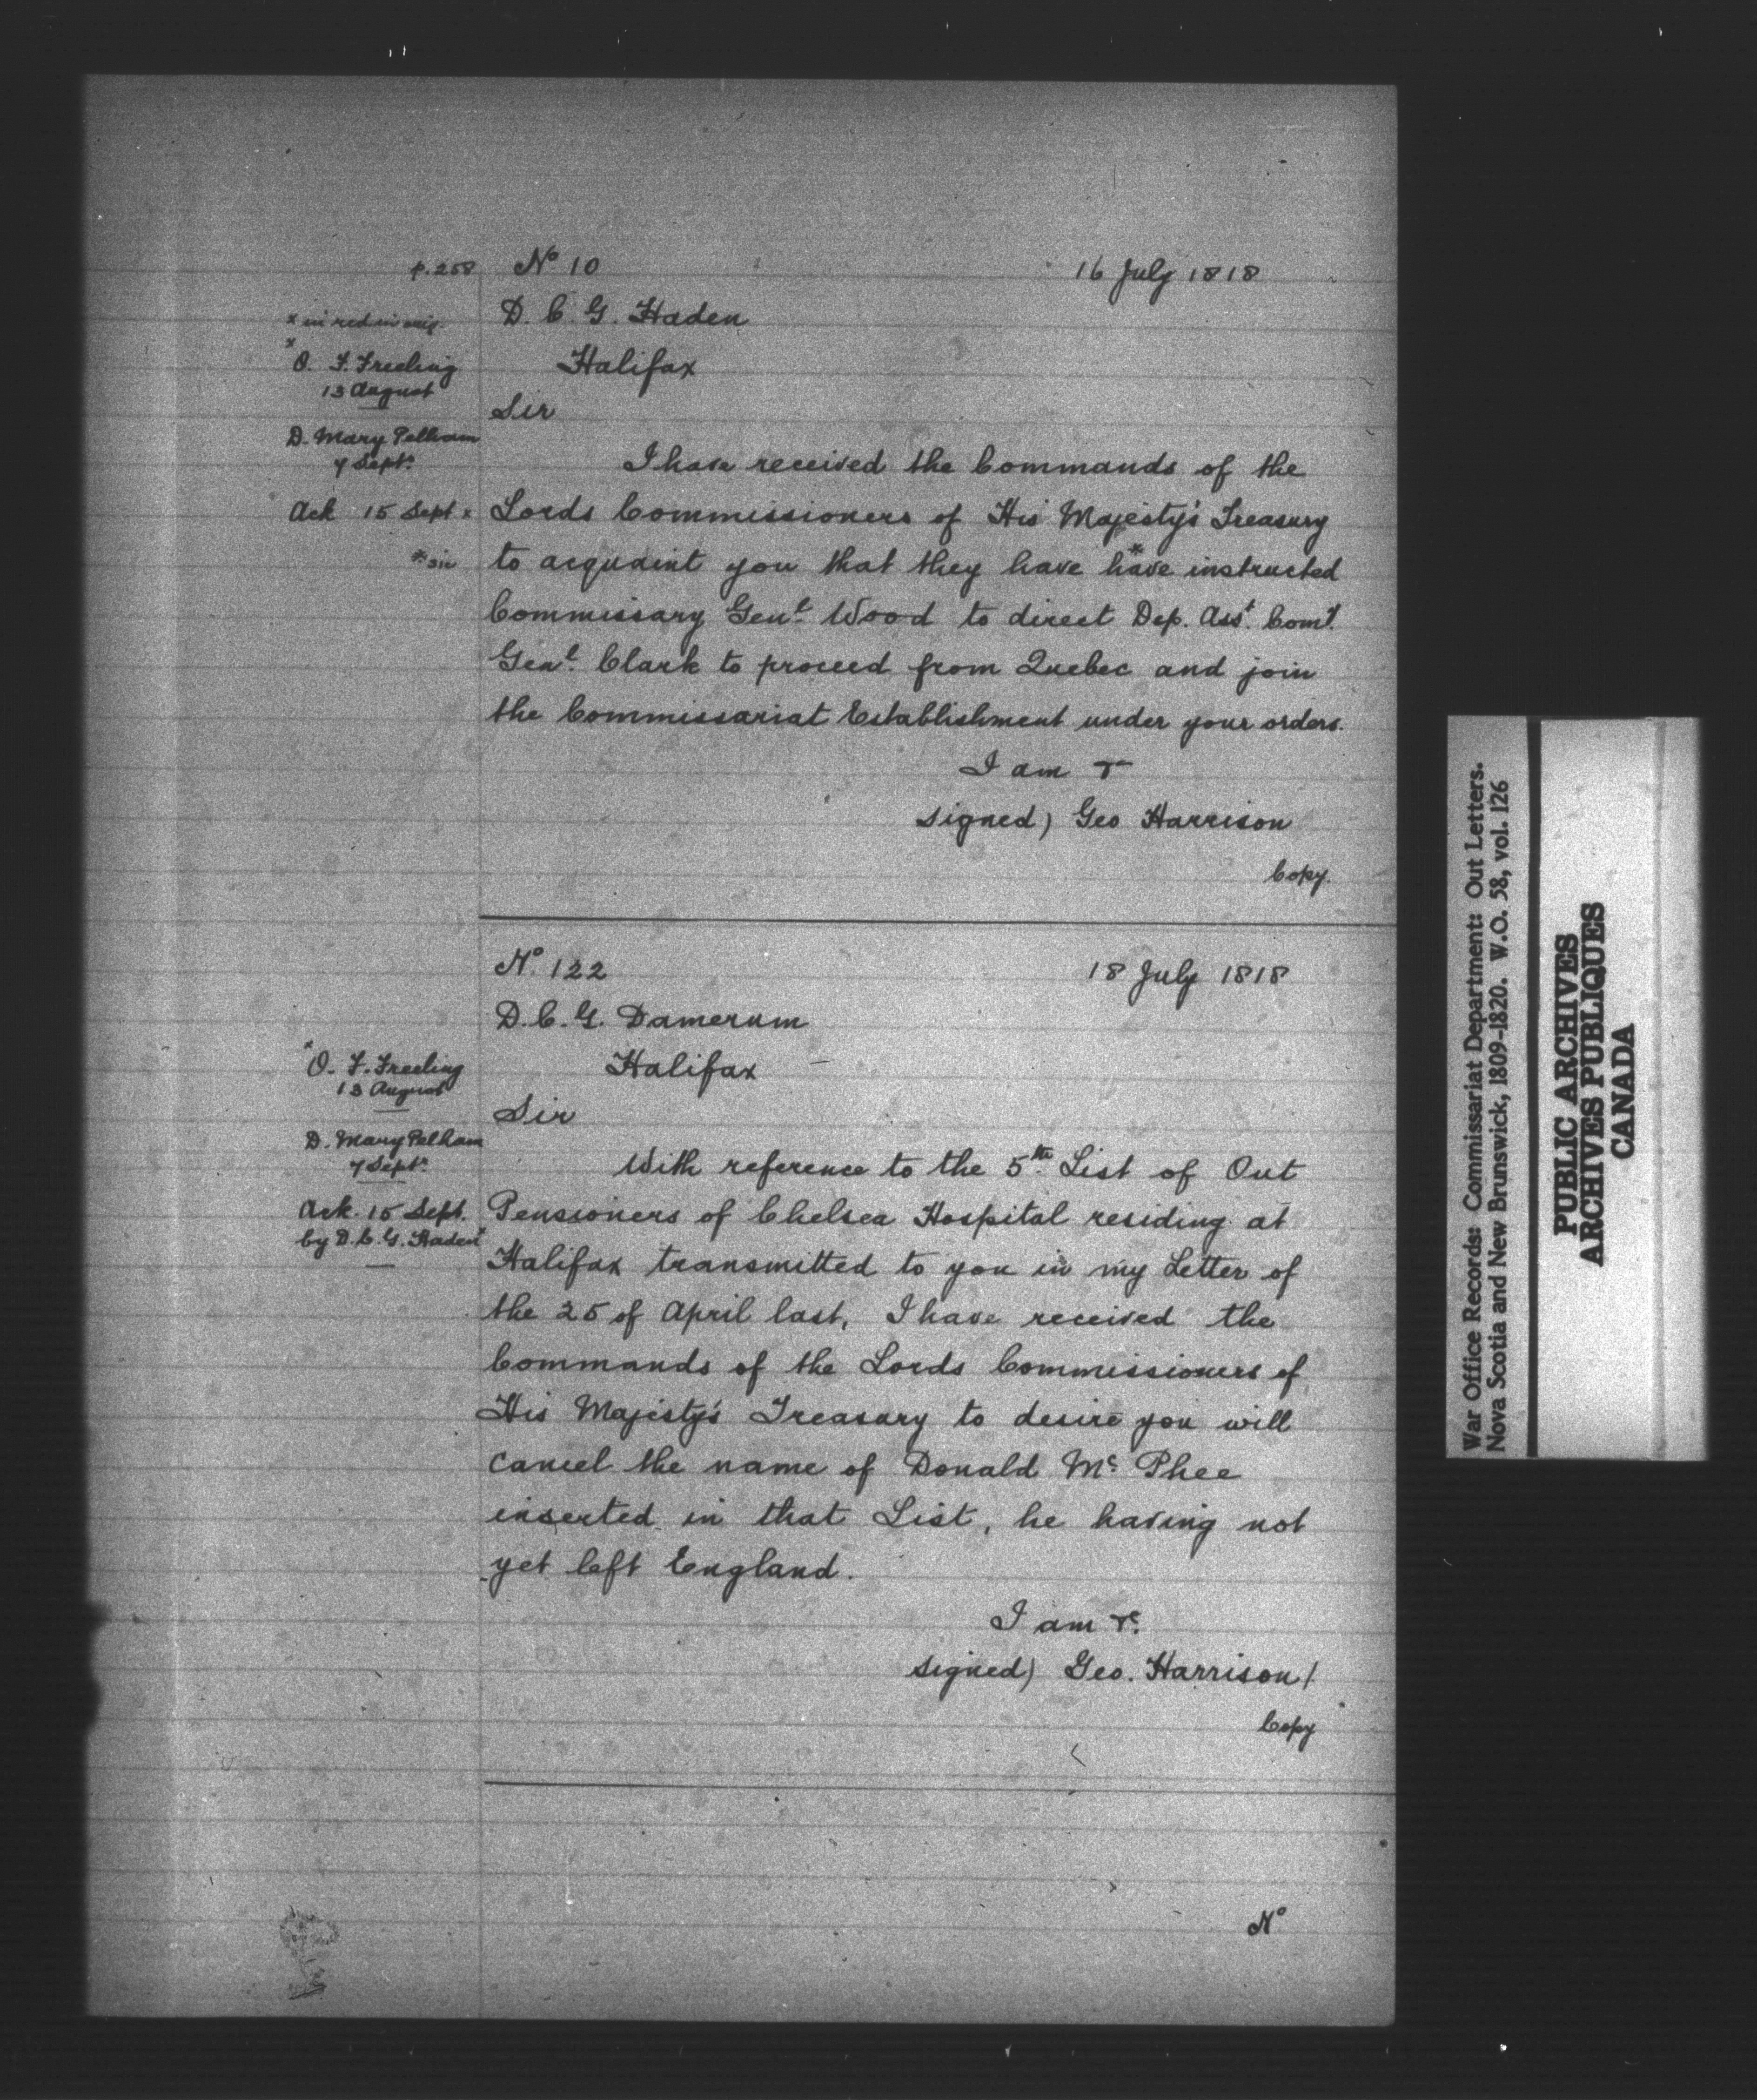 p. 258
No 10
16 July 1818
* in red in orig.
D. C. G. Haden
Halifax
* O. F. Freeling
13 August
Sir
D. Mary Pelham
7 Septr
I have received the Commands of the
Ack 15 Sept x
Lords Commissioners of His Majesty's Treasury
* sic
to acquaint you that they have have* instructed
Commissary Genl. Wood to direct Dep. Asst. Comy.
Genl. Clark to proceed from Quebec and join
the Commissariat Establishment under your orders.
I am &
signed) Geo Harrison
Copy.
No. 122
18 July 1818
D. C. G. Damerum
Halifax
* O. F. Freeling
13 August
Sir
D. Mary Pelham
7 Septr
With reference to the 5th. List of Out
Ack. 15 Sept.
by D. C. G. Haden*
Pensioners of Chelsea Hospital residing at
Halifax transmitted to you in my Letter of
the 25 of April last, I have received the
Commands of the Lords Commissioners of
His Majesty's Treasury to desire you will
cancel the name of Donald Mc. Phee
inserted in that List, he having not
yet left England.
I am &c.
signed) Geo. Harrison/
Copy
No
War Office Records: Commissariat Department: Out Letters.
Nova Scotia and New Brunswick, 1809-1820. W.O. 58, vol. 126
PUBLIC ARCHIVES
ARCHIVES PUBLIQUES
CANADA